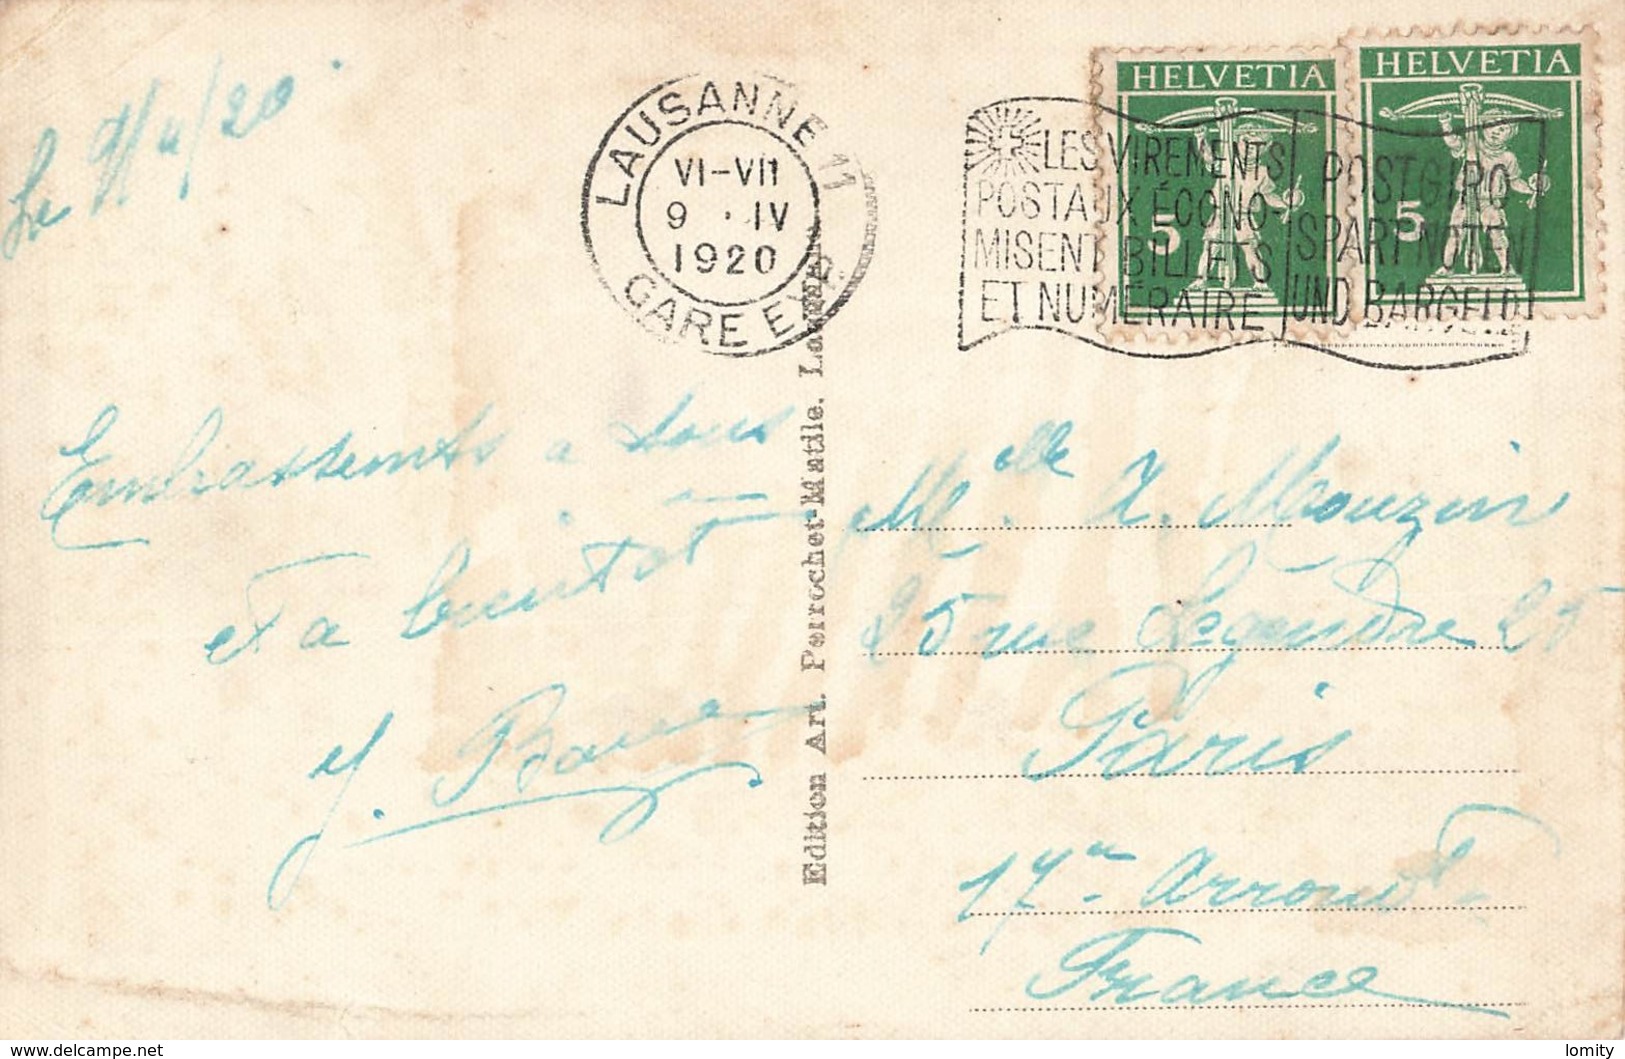 Le 9/4/20
LAUSANNE 11
VI-VII
9 · IV
1920
GARE EXP.
LES VIREMENTS
POSTAUX ÉCONO-
MISENT BILLETS
ET NUMÉRAIRE
POSTGIRO
SPART NOTEN
UND BARGELD
HELVETIA
5
HELVETIA
5
Embrassements a tous
et a bientot
J.
Edition Art. Perrochet-Matile. Lausanne
Melle A. Mouzin
25 rue Legendre 25
Paris
17me Arrondt
France
delcampe.net
lomity